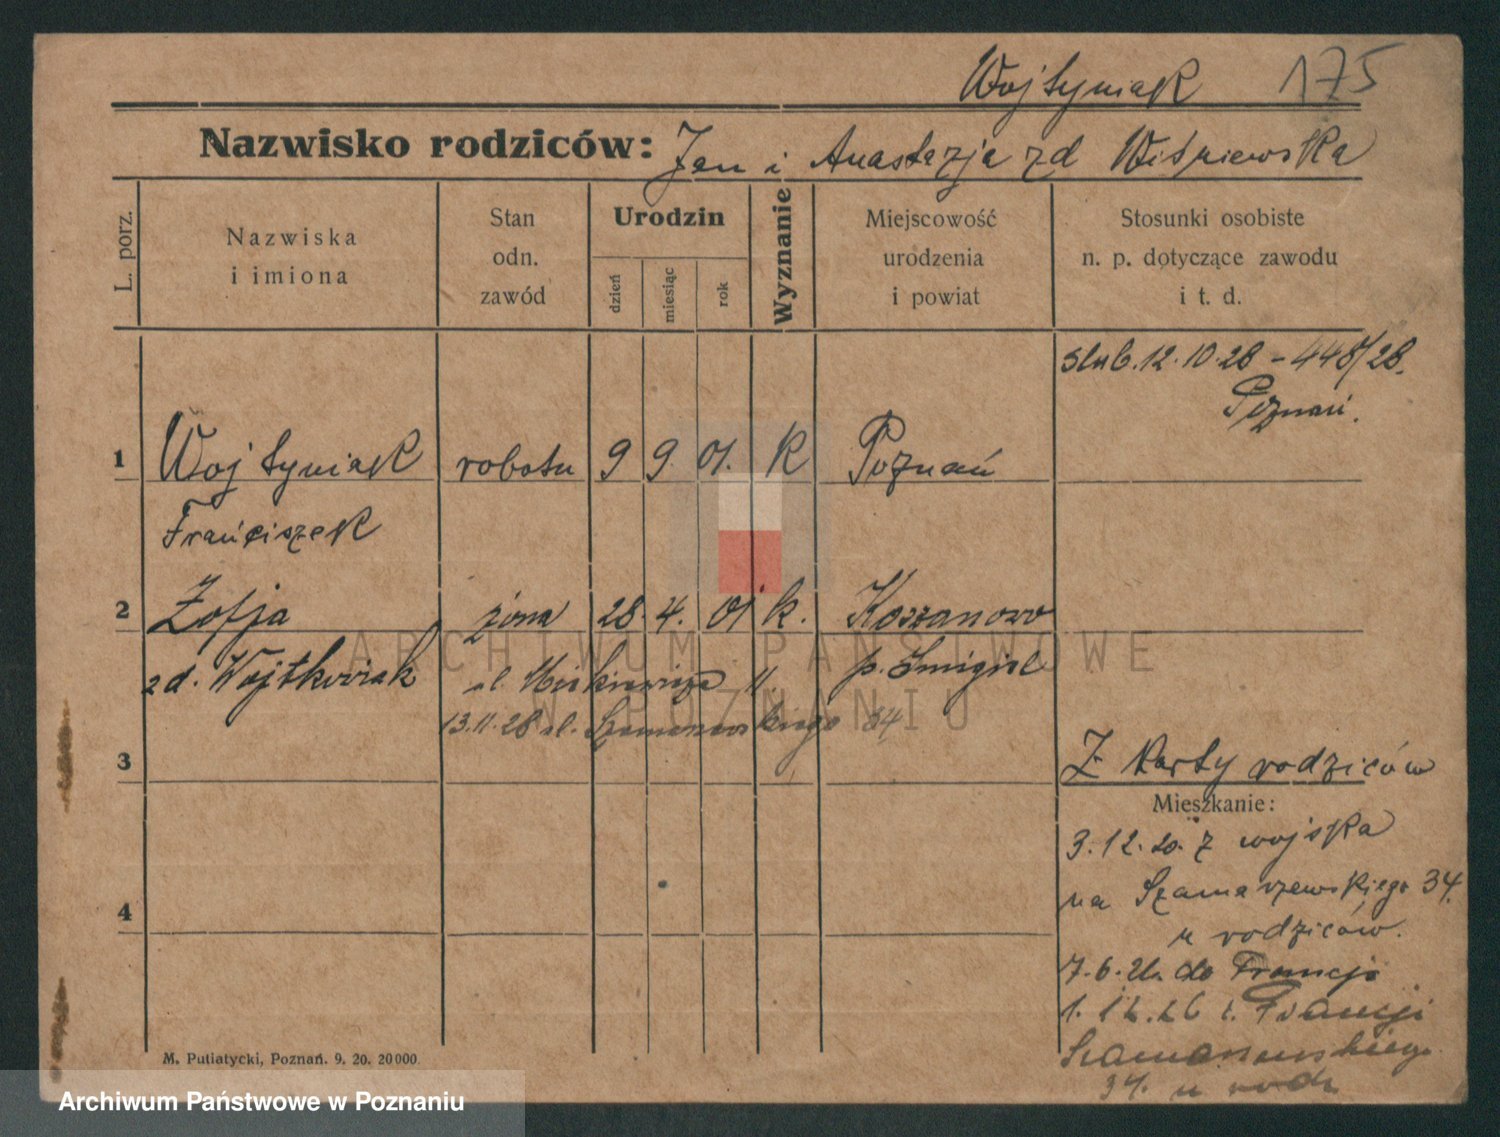 Wojtyniak 175
Nazwisko rodziców: Jan i Anastazja zd Wiśniewska
L. porz.
Nazwiska
i imiona
Stan
odn.
zawód
Urodzin
dzień
miesiąc
rok
Wyznanie
Miejscowość
urodzenia
i powiat
Stosunki osobiste
n. p. dotyczące zawodu
i t. d.
slub. 12.10.28 - 448/28.
Poznań.
1 Wojtyniak robotn 9 9. 01. K Poznań
Franciszek
2 Zofja żona 28. 4. 01 k. Koszanowo
zd. Wojtkowiak ul. Mickiewicza 11 p. Śmigiel
13.11.28 ul. Szamarzewskiego 34
3
Z karty rodziców
Mieszkanie:
3.12.20. z wojska
na Szamarzewskiego 34.
u rodziców.
4
7.6. do Francji
1.12.26 z Francji
Szamarzewskiego
34. u rodz
M. Putiatycki, Poznań. 9. 20. 20000.
ARCHIWUM PAŃSTWOWE
W POZNANIU
Archiwum Państwowe w Poznaniu